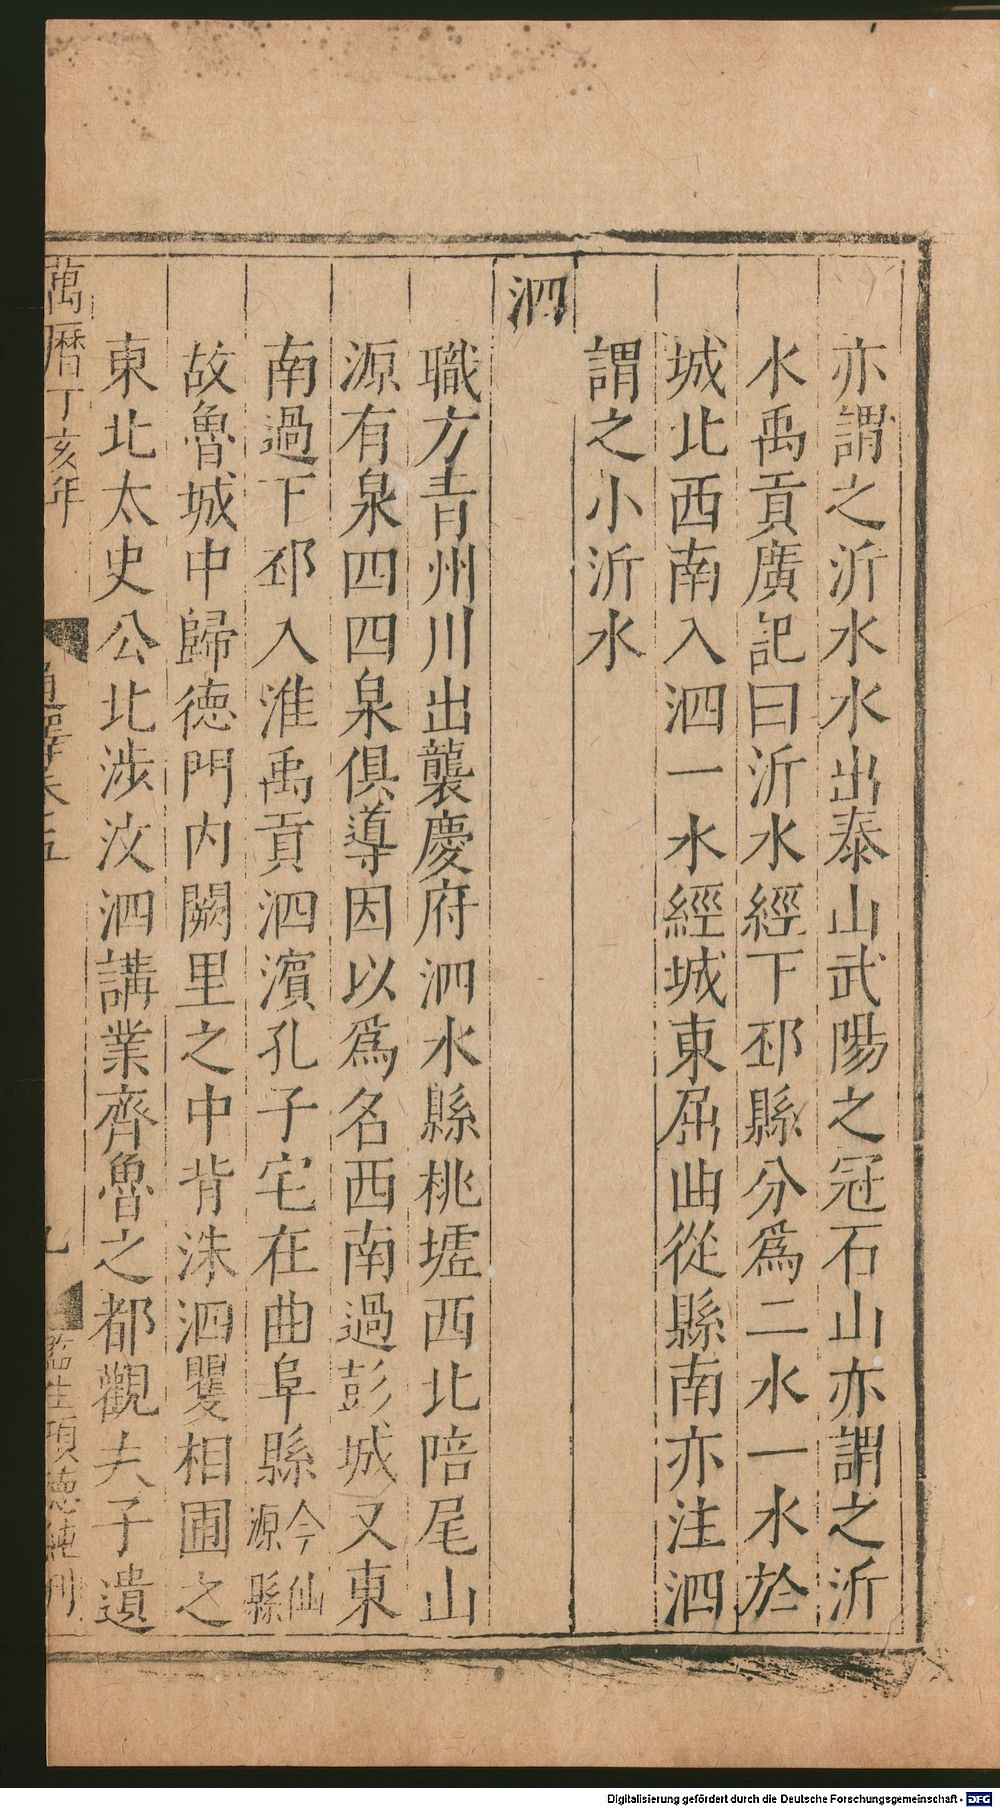 亦謂之沂水水出泰山武陽之冠石山亦謂之沂
水禹貢廣記曰沂水經下邳縣分爲二水一水於
城北西南入泗一水經城東屈曲從縣南亦注泗
謂之小沂水
泗
職方青州川出襲慶府泗水縣桃墟西北陪尾山
源有泉四四泉俱導因以爲名西南過彭城又東
南過下邳入淮禹貢泗濱孔子宅在曲阜縣今仙源縣
故魯城中歸德門内闕里之中背洙泗矍相圃之
東北太史公北涉汶泗講業齊魯之都觀夫子遺
萬曆丁亥年
通釋卷五
九
監生項德純刊
Digitalisierung gefördert durch die Deutsche Forschungsgemeinschaft - DFG